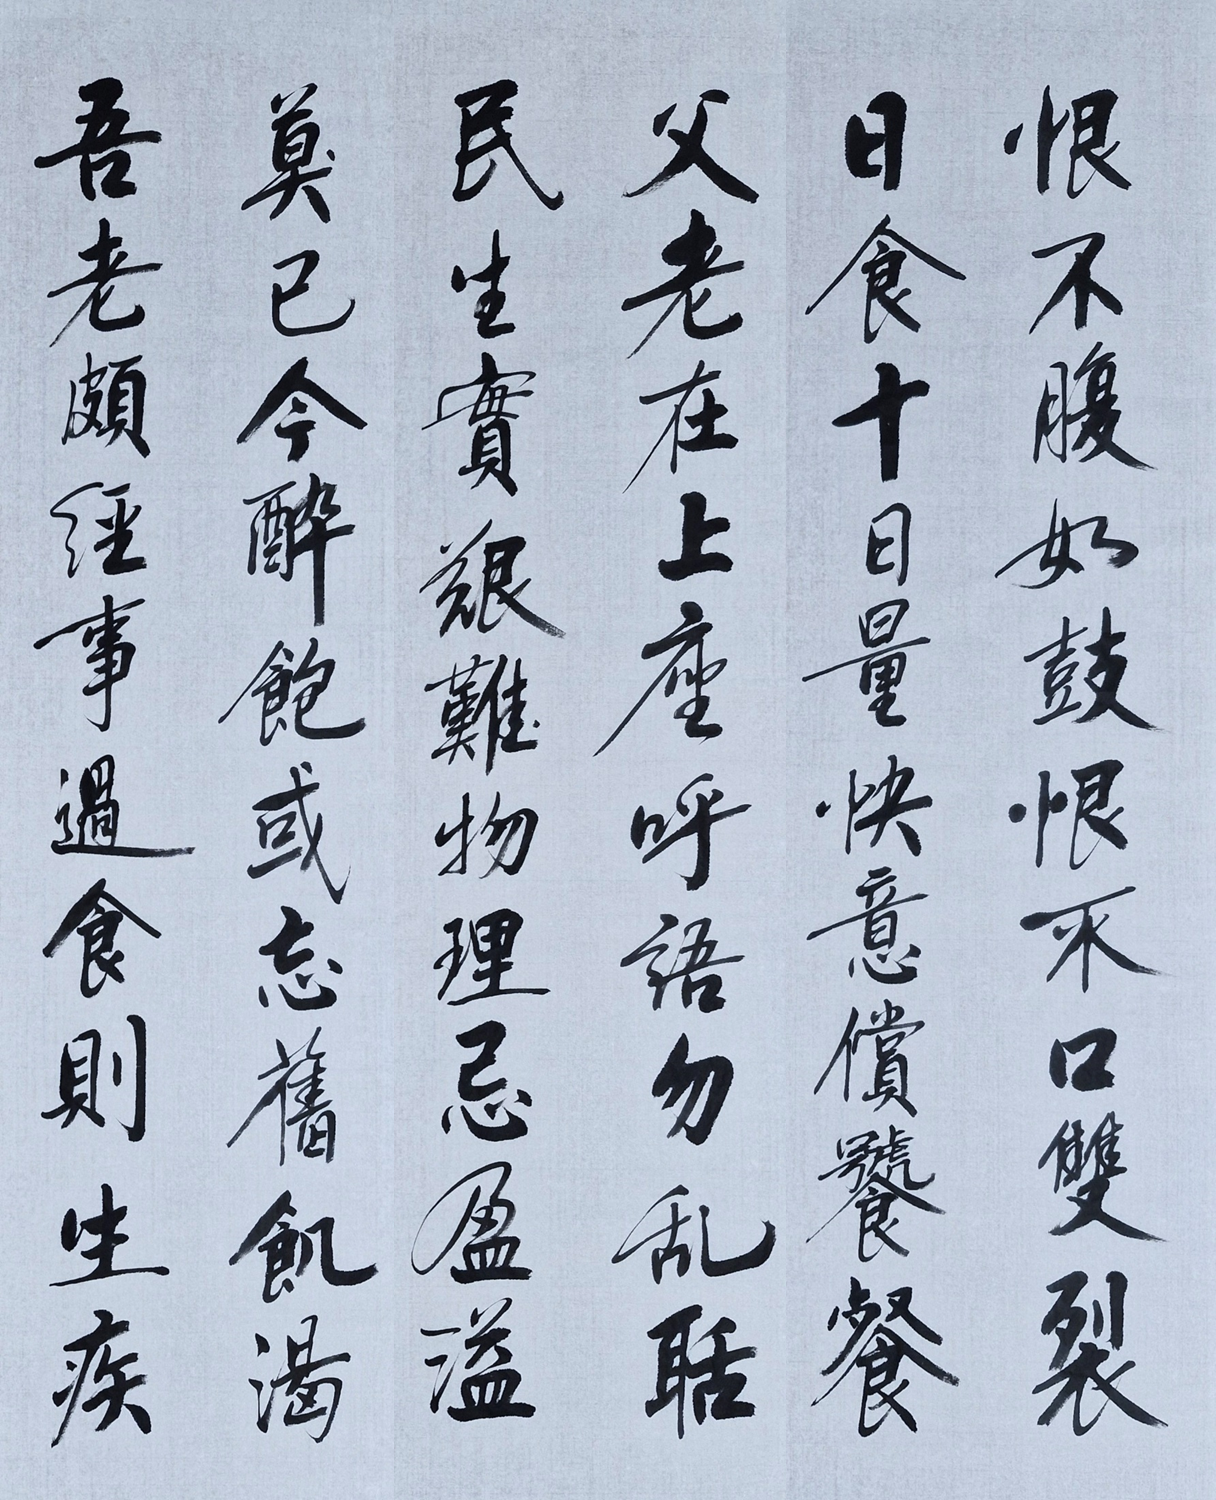 恨不腹如鼓恨不口雙裂
日食十日量快意償饕餐
父老在上座呼語勿乱聒
民生實艱難物理忌盈溢
莫已今醉飽或忘舊飢渴
吾老頗經事過食則生疾